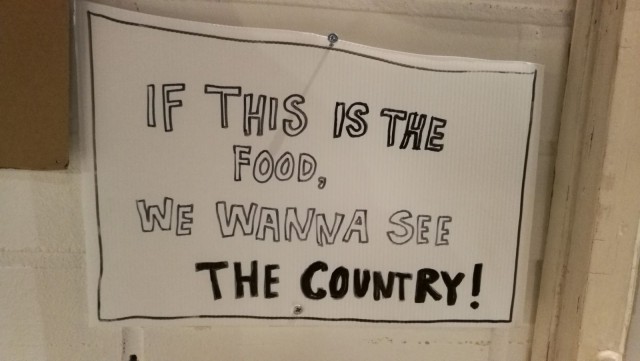 IF THIS IS THE
FOOD,
WE WANNA SEE
THE COUNTRY!